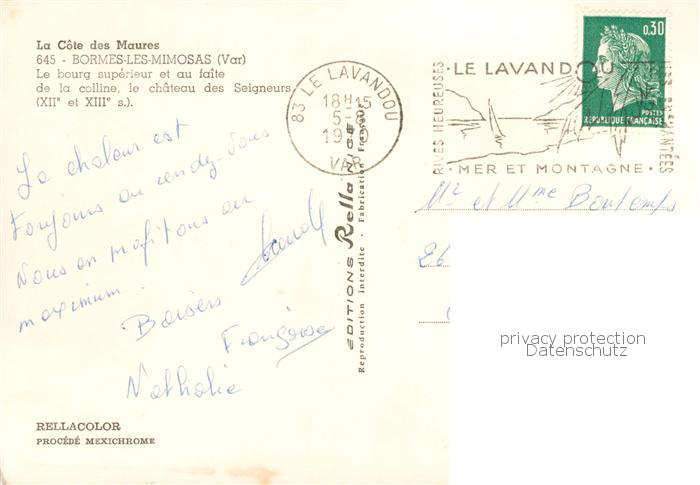 La Côte des Maures
645 - BORMES-LES-MIMOSAS (Var)
Le bourg supérieur et au faîte
de la colline, le château des Seigneurs
(XIIe et XIIIe s.).
La chaleur est
toujours au rendez-vous
Nous en profitons au
maximum.
Baisers
Françoise
Nathalie
RELLACOLOR
PROCÉDÉ MEXICHROME
EDITIONS Rella NICE
Reproduction Interdite - Fabrication Française
83 LE LAVANDOU
18H15
5-8
19
VAR
RIVES HEUREUSES
LE LAVANDOU
MER ET MONTAGNE
0,30
POSTES
REPUBLIQUE FRANÇAISE
Mr et Mme Bontemps
26
privacy protection
Datenschutz